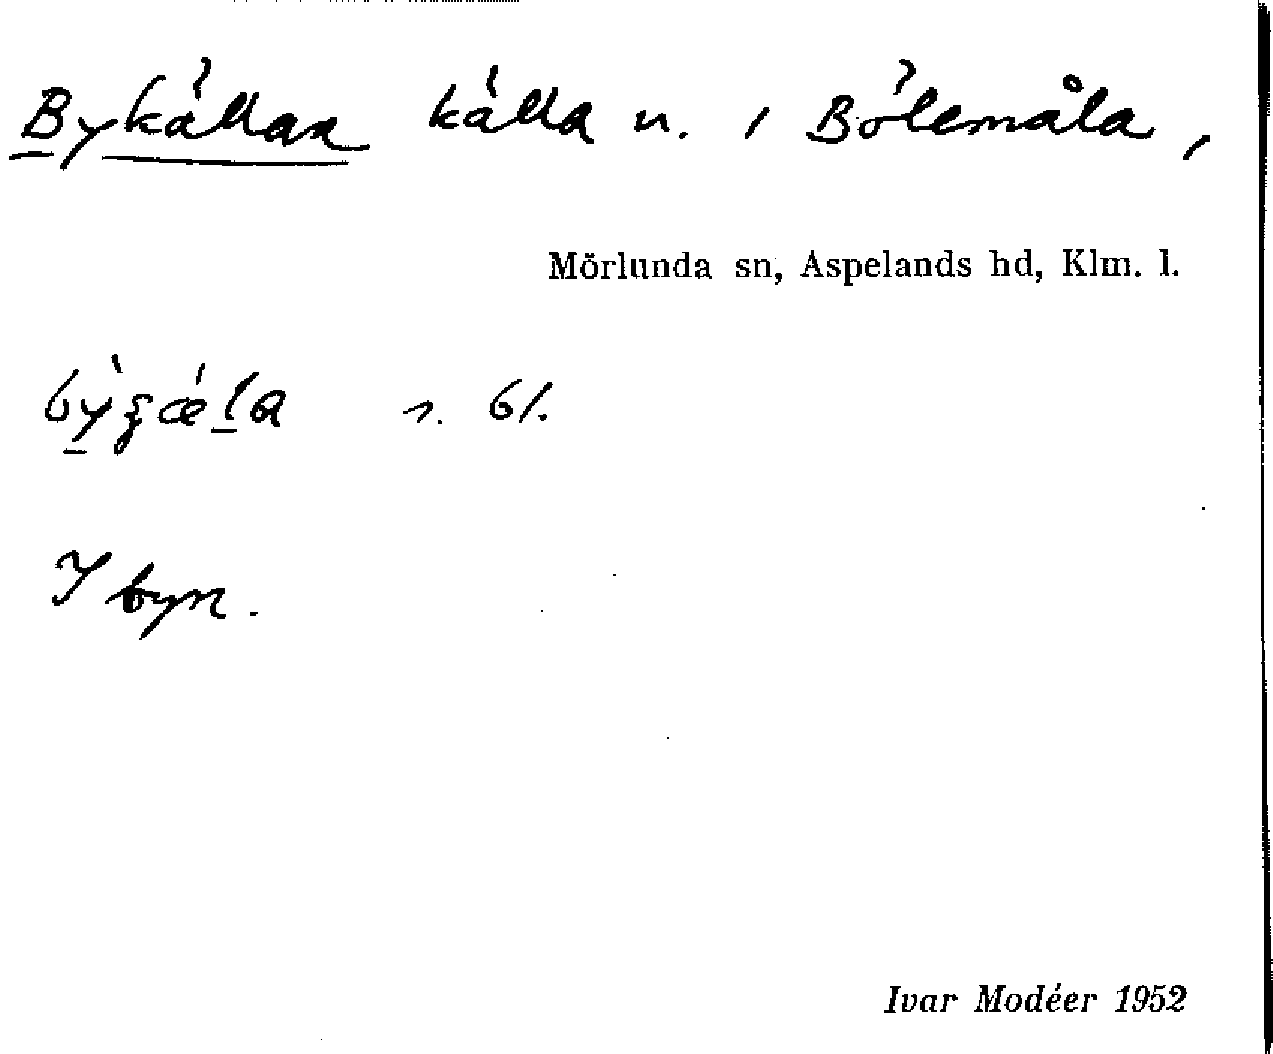 Bykällan källa n. i Bölemåla,
Mörlunda sn, Aspelands hd, Klm. l.
I byn.
Ivar Modéer 1952